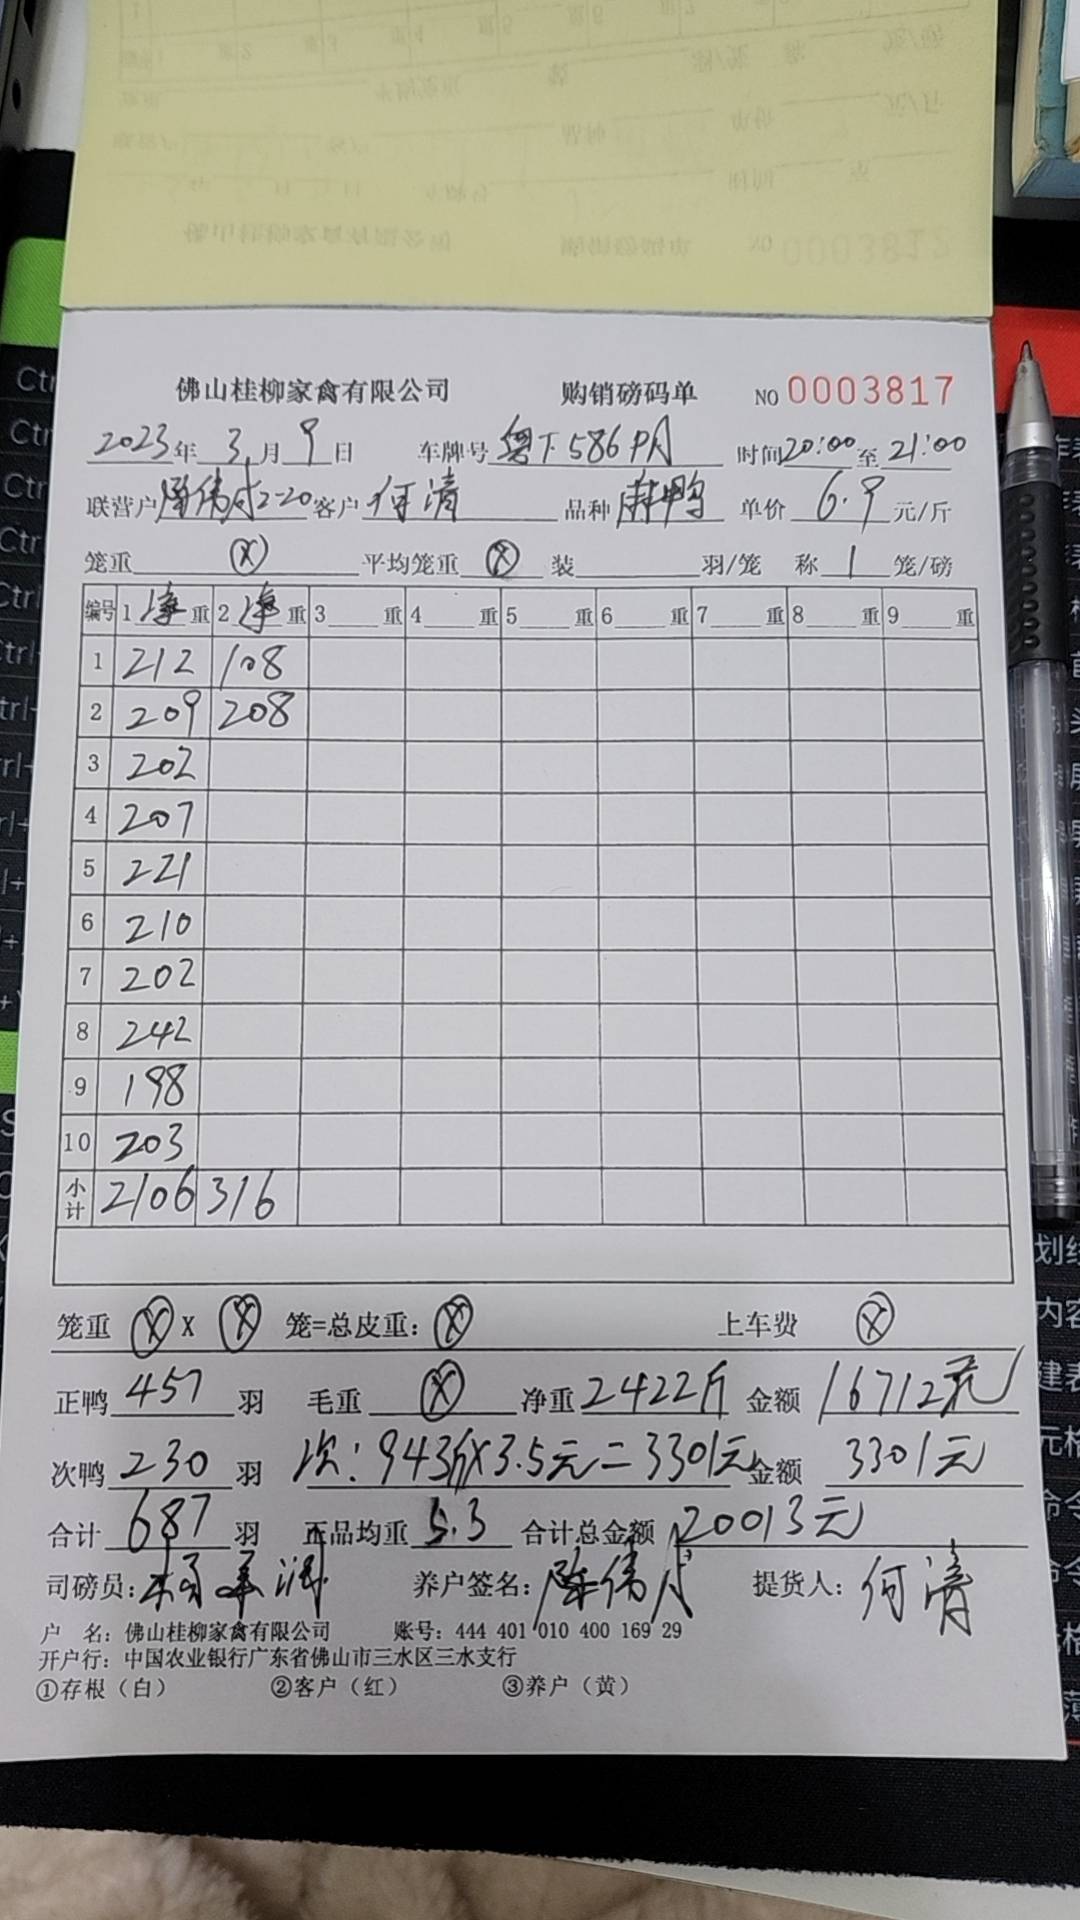 佛山桂柳家禽有限公司 购销磅码单 NO 0003817
2023年3月9日 车牌号 粤T586PA 时间20:00至21:00
联营户 陈伟成2-20 客户 何清 品种 麻鸭 单价 6.9 元/斤
笼重 平均笼重 装 羽/笼 称 1 笼/磅
编号 1 净 重 2 净 重 3 重 4 重 5 重 6 重 7 重 8 重 9 重
1 212 108
2 209 208
3 202
4 207
5 221
6 210
7 202
8 242
9 198
10 203
小计 2106 316
笼重 X 笼=总皮重: 上车费
正鸭 457 羽 毛重 净重 2422斤 金额 16712元
次鸭 230 羽 次:943斤X3.5元=3301元 金额 3301元
合计 687 羽 正品均重 5.3 合计总金额 20013元
司磅员: 养户签名:陈伟成 提货人:何清
户 名:佛山桂柳家禽有限公司 账号:444 401 010 400 169 29
开户行:中国农业银行广东省佛山市三水区三水支行
①存根(白) ②客户(红) ③养户(黄)